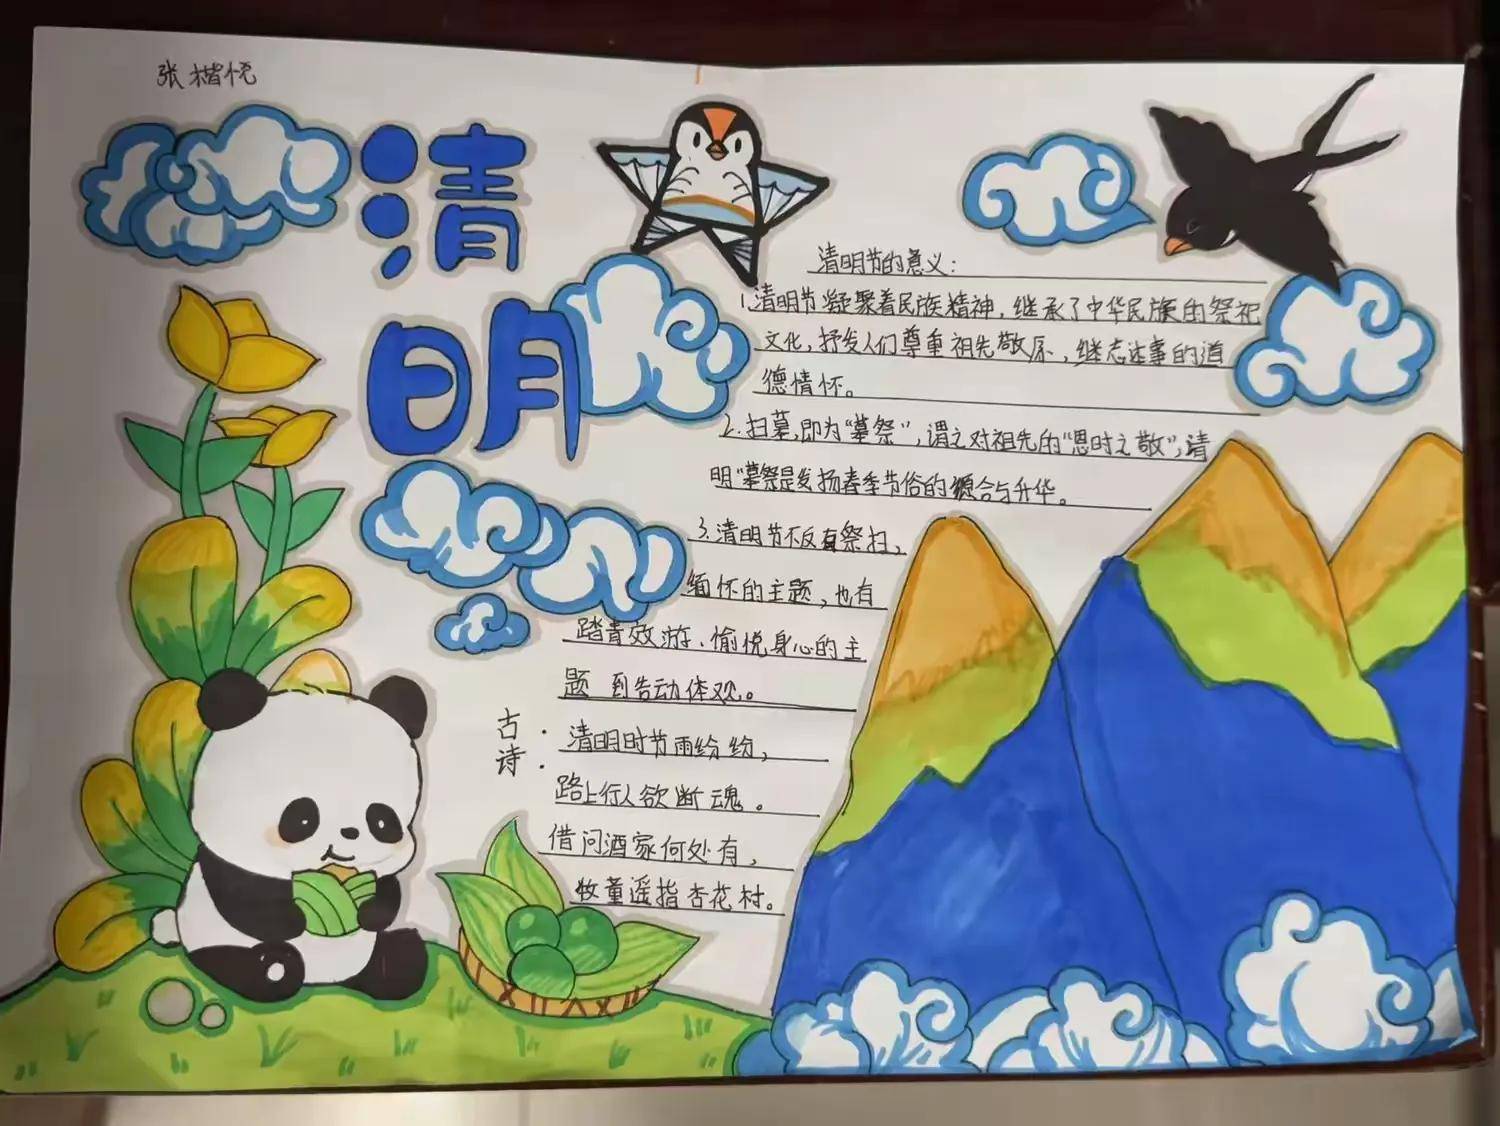 张楷悦
清
明
清明节的意义:
1.清明节凝聚着民族精神,继承了中华民族的祭祀
文化,抒发人们尊重祖先敬 ,继志述事的道
德情怀。
2.扫墓,即为“墓祭”,谓之对祖先的“思时之敬”,清
明“墓祭是发扬春季节俗的 合与升华。
3.清明节不反有祭扫,
缅怀的主题,也有
踏青效游、愉悦身心的主
题 到告动体观。
古诗:
清明时节雨纷纷,
路上行人欲断魂。
借问酒家何处有,
牧童遥指杏花村。